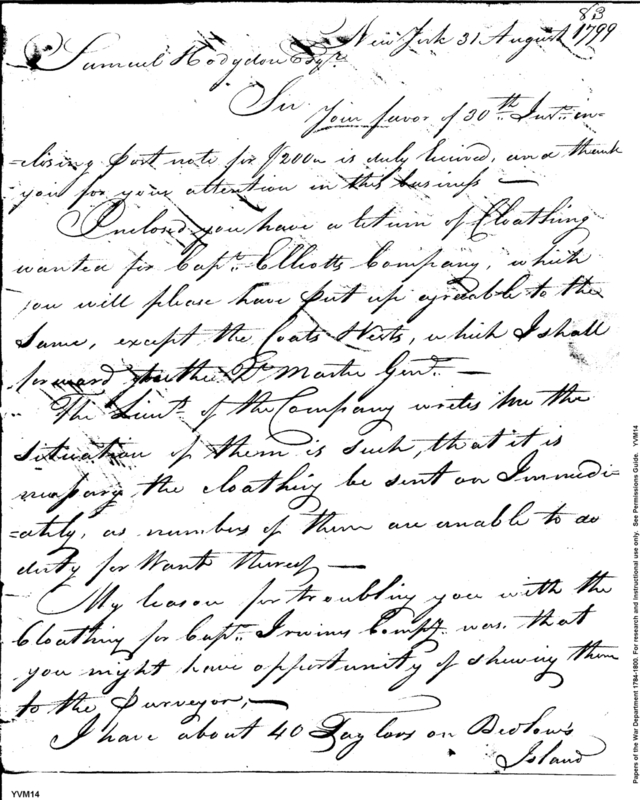 83
New York 31 August 1799
Samuel Hodgdon Esqr.
Sir
Your favor of 30th. Inst. in=
=closing post note for $2000 is duly received, and thank
you for your attention in this business —
Inclosed you have a return of Cloathing
wanted for Capt. Elliotts Company, which
you will please have put up agreable to the
same, except the Coats Vests, which I shall
forward to the Qr. Master Genl. —
The Lieut. of the Company writes me the
situation of them is such, that it is
necessary the cloathing be sent on Immedi=
=ately, as numbers of them are unable to do
duty for Want thereof —
My reason for troubling you with the
Cloathing for Capt. Irvins Compy. was that
you might have opportunity of shewing them
to the Purveyor, —
I have about 40 Taylors on Bedlow's
Island
Papers of the War Department 1784-1800. For research and instructional use only. See Permissions Guide. YVM14
YVM14